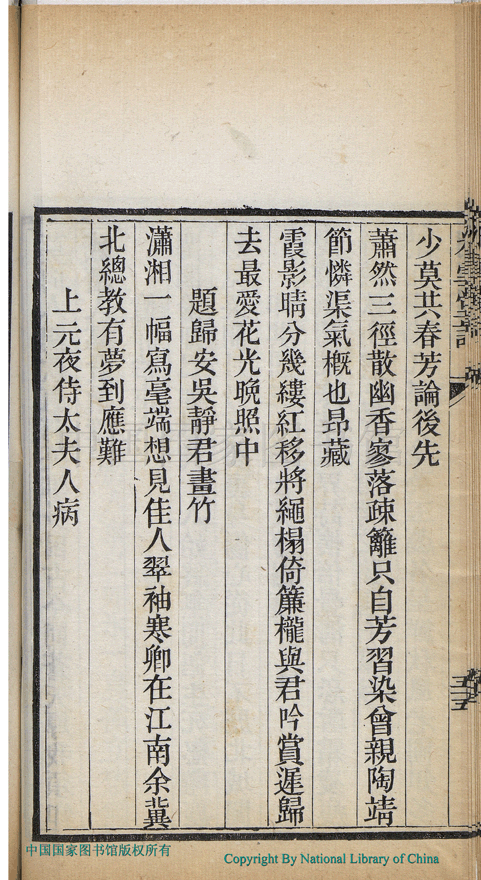 少莫共春芳論後先
蕭然三徑散幽香寥落疎籬只自芳習染曾親陶靖
節憐渠氣概也昻藏
霞影晴分幾縷紅移將繩榻倚簾櫳與君吟賞遲歸
去最愛花光晚照中
題歸安吳靜君畫竹
瀟湘一幅寫毫端想見佳人翠袖寒卿在江南余冀
北總教有夢到應難
上元夜侍太夫人病
中国国家图书馆版权所有
Copyright By National Library of China